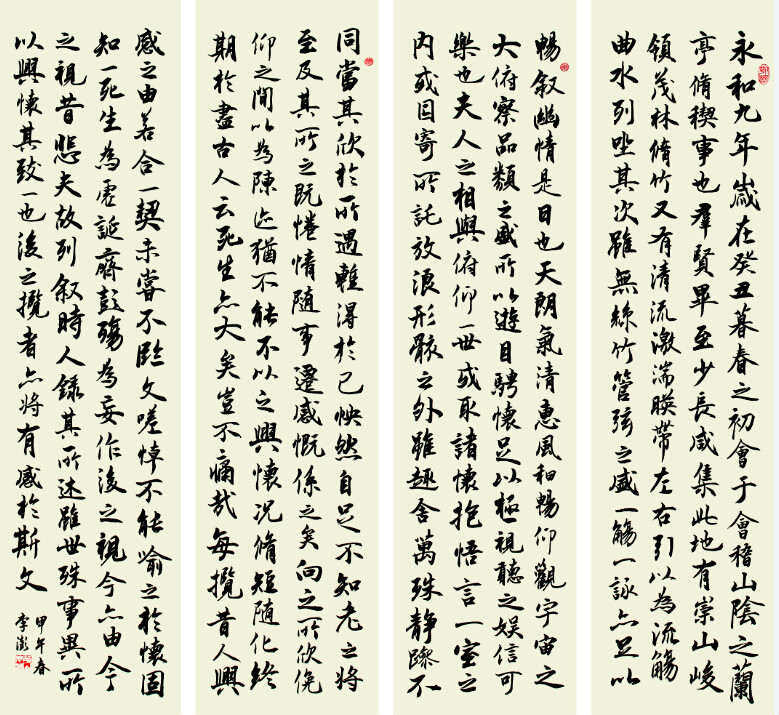 永和九年歲在癸丑暮春之初會于會稽山陰之蘭
亭脩稧事也羣賢畢至少長咸集此地有崇山峻
領茂林脩竹又有清流激湍暎帶左右引以為流觴
曲水列坐其次雖無絲竹管弦之盛一觴一詠亦足以
暢叙幽情是日也天朗氣清惠風和暢仰觀宇宙之
大俯察品類之盛所以遊目騁懷足以極視聽之娛信可
樂也夫人之相與俯仰一世或取諸懷抱悟言一室之
內或因寄所託放浪形骸之外雖趣舍萬殊靜躁不
同當其欣於所遇輙得於己怏然自足不知老之將
至及其所之既惓情隨事遷感慨係之矣向之所欣俛
仰之間以為陳迹猶不能不以之興懷況脩短隨化終
期於盡古人云死生亦大矣豈不痛哉每攬昔人興
感之由若合一契未嘗不臨文嗟悼不能喻之於懷固
知一死生為虛誕齊彭殤為妄作後之視今亦由今
之視昔悲夫故列叙時人錄其所述雖世殊事異所
以興懷其致一也後之攬者亦將有感於斯文
甲午春
李澎